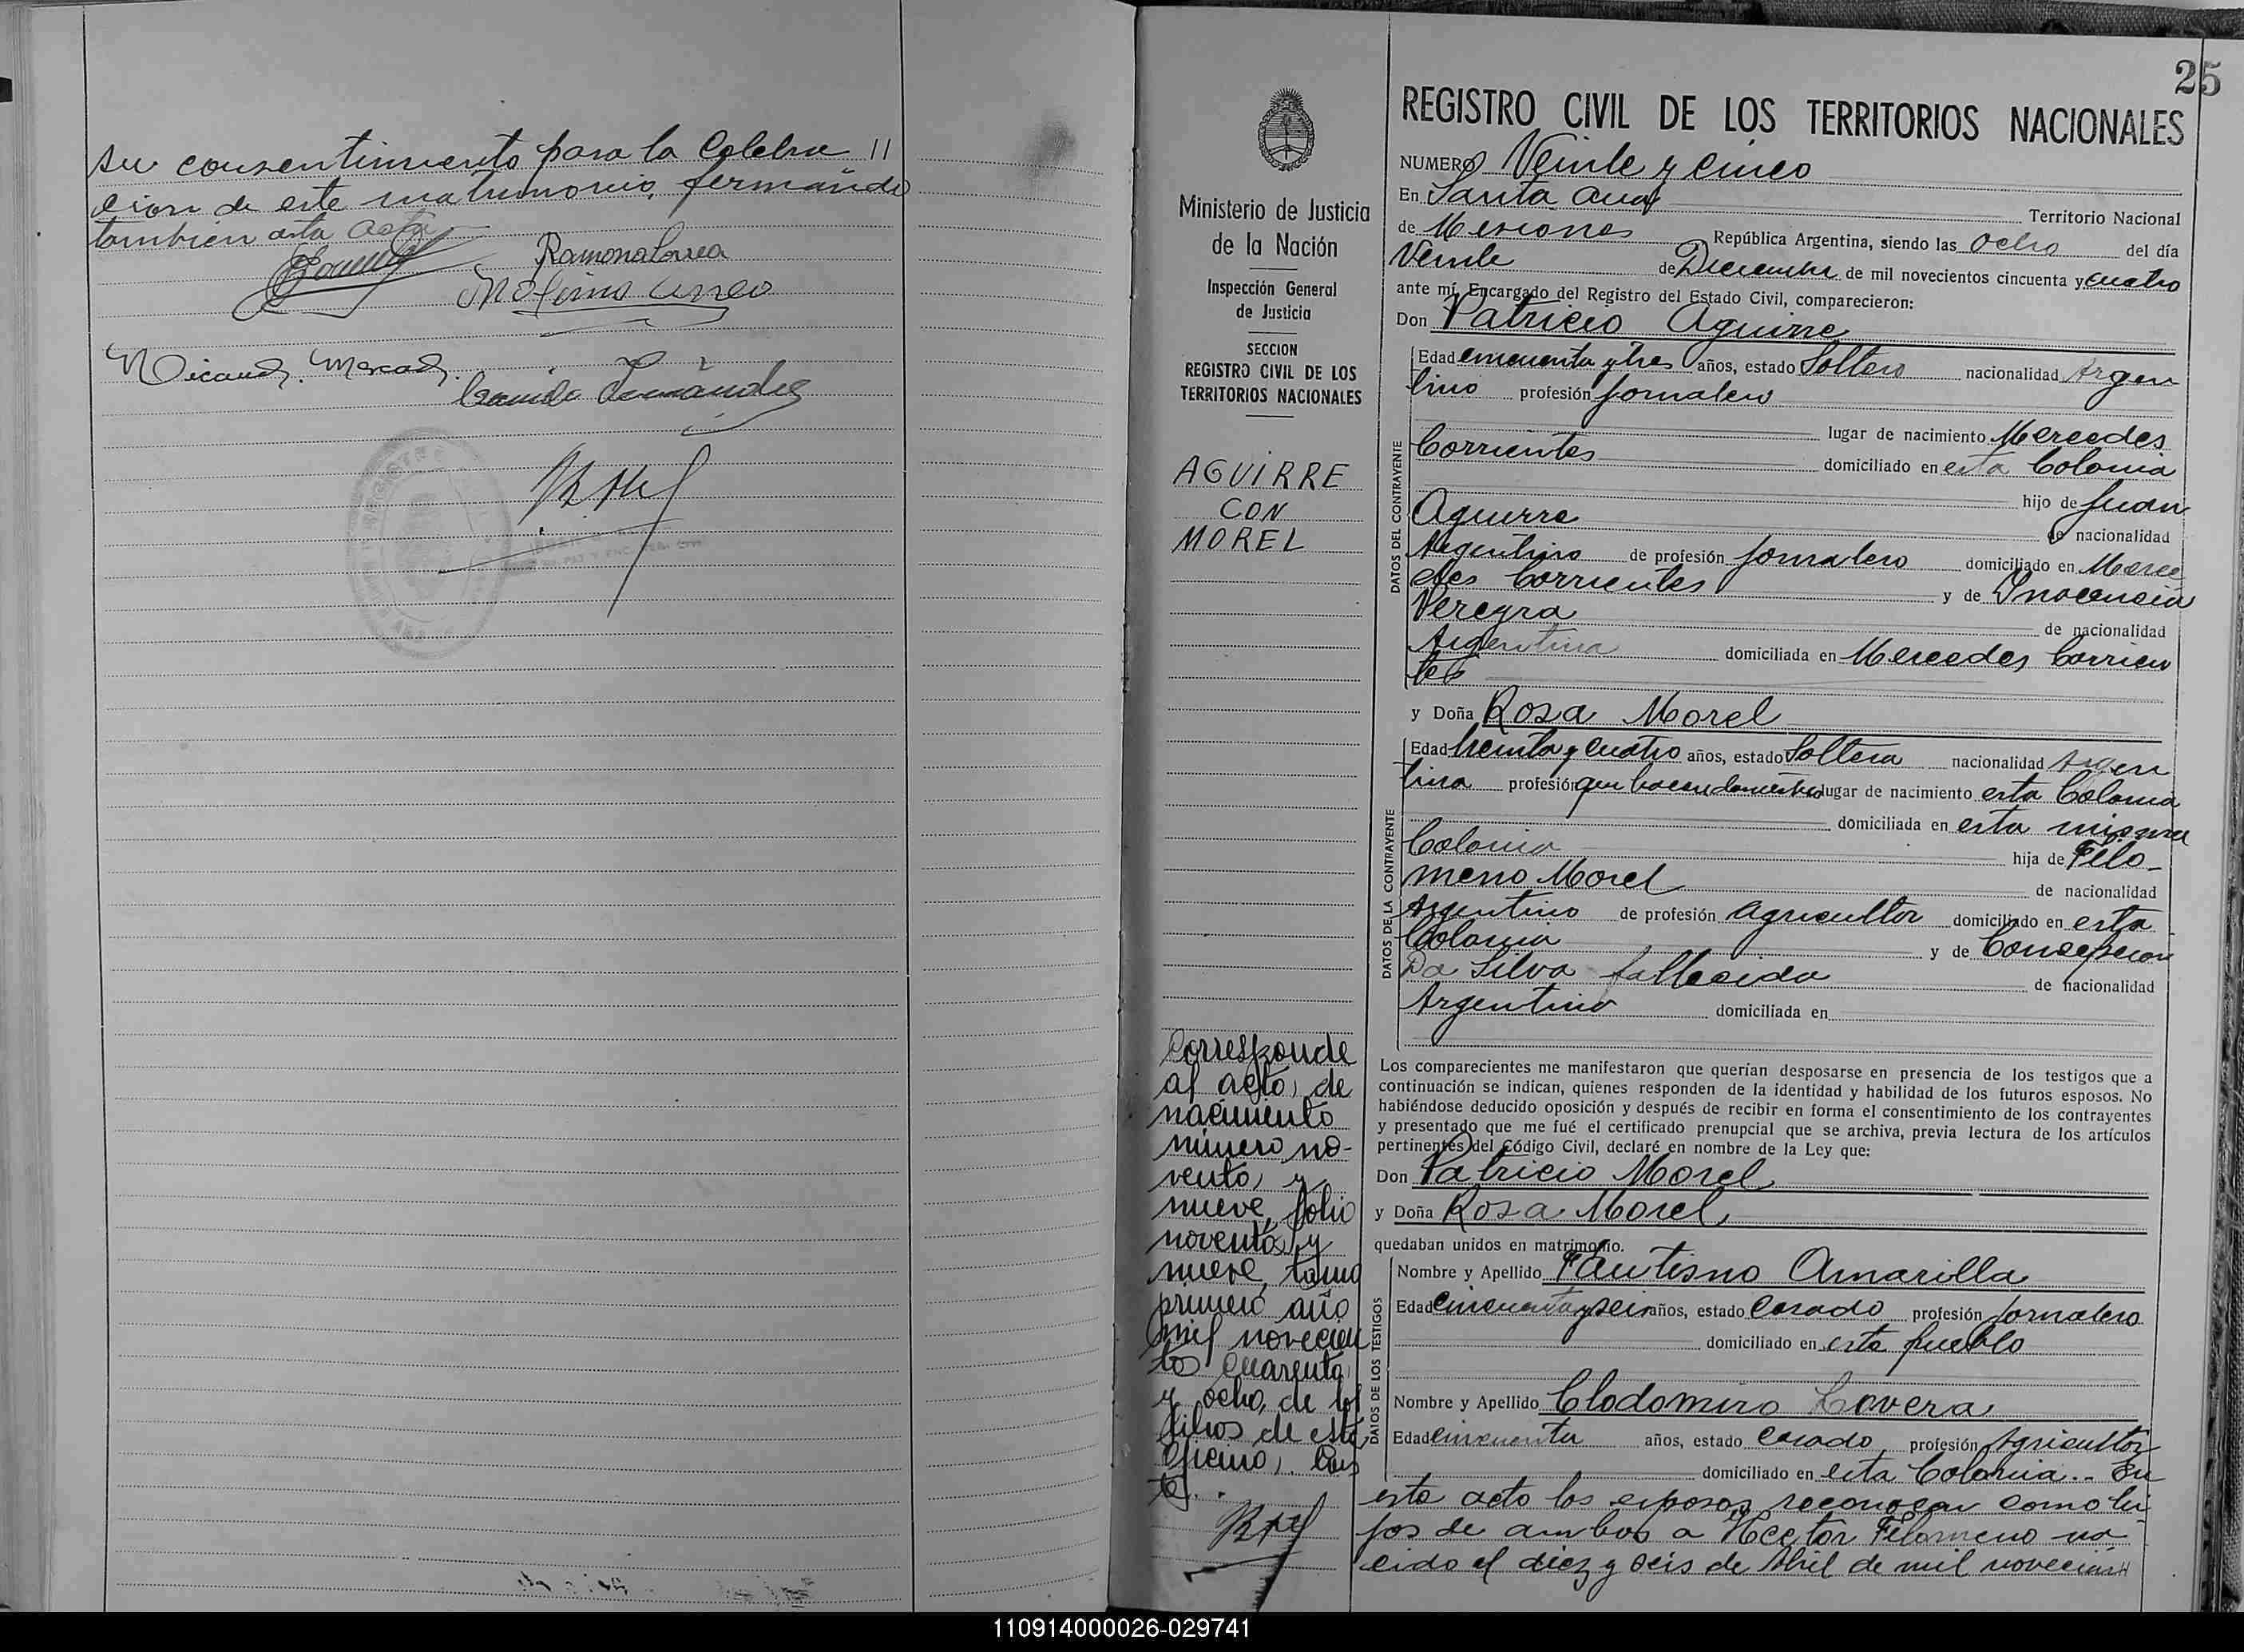 su consentimiento para la Celebra //
cion de este matrimonio, firmando
tambien esta acta
Ramona Correa
Nicanor Mercado.
Camilo Fernandez
25
REGISTRO CIVIL DE LOS TERRITORIOS NACIONALES
NUMERO Veinte y cinco
En Santa Ana Territorio Nacional
de Misiones República Argentina, siendo las ocho del día
Veinte de Diciembre de mil novecientos cincuenta y cuatro
ante mí, Encargado del Registro del Estado Civil, comparecieron:
Don Patricio Aguirre
Edad cincuenta y tres años, estado Soltero nacionalidad Argen
tino profesión jornalero
lugar de nacimiento Mercedes
Corrientes domiciliado en esta Colonia
hijo de Juan
Aguirre de nacionalidad
Argentino de profesión jornalero domiciliado en Merce
des Corrientes y de Inocencia
Vereyra de nacionalidad
Argentina domiciliada en Mercedes Corrien
tes
y Doña Rosa Morel
Edad treinta y cuatro años, estado Soltera nacionalidad Argen
tina profesión que lugar de nacimiento esta Colonia
domiciliada en esta misma
Colonia hija de Filo-
meno Morel de nacionalidad
Argentino de profesión agricultor domiciliado en esta
Colonia y de Concepcion
Da Silva fallecida de nacionalidad
Argentina domiciliada en
Los comparecientes me manifestaron que querían desposarse en presencia de los testigos que a
continuación se indican, quienes responden de la identidad y habilidad de los futuros esposos. No
habiéndose deducido oposición y después de recibir en forma el consentimiento de los contrayentes
y presentado que me fué el certificado prenupcial que se archiva, previa lectura de los artículos
pertinentes del Código Civil, declaré en nombre de la Ley que:
Don Patricio Morel
y Doña Rosa Morel
quedaban unidos en matrimonio.
Nombre y Apellido Fautisno Amarilla
Edad cincuenta y seis años, estado Casado profesión jornalero
domiciliado en este pueblo
Nombre y Apellido Clodomiro Lovera
Edad cincuenta años, estado Casado profesión Agricultor
domiciliado en esta Colonia.. En
este acto los esposos reconocen como hi
jos de ambos a Hector Filomeno na
cido el diez y seis de Abril de mil novecien//
DATOS DEL CONTRAYENTE
DATOS DE LA CONTRAYENTE
DATOS DE LOS TESTIGOS
Ministerio de Justicia
de la Nación
Inspección General
de Justicia
SECCION
REGISTRO CIVIL DE LOS
TERRITORIOS NACIONALES
AGUIRRE
CON
MOREL
Corresponde
al acta de
nacimiento
número no-
venta y
nueve, folio
noventa y
nueve, tomo
primero año
mil novecien
tos cuarenta
y ocho, de los
libros de esta
Oficina. Cons
te.
110914000026-029741